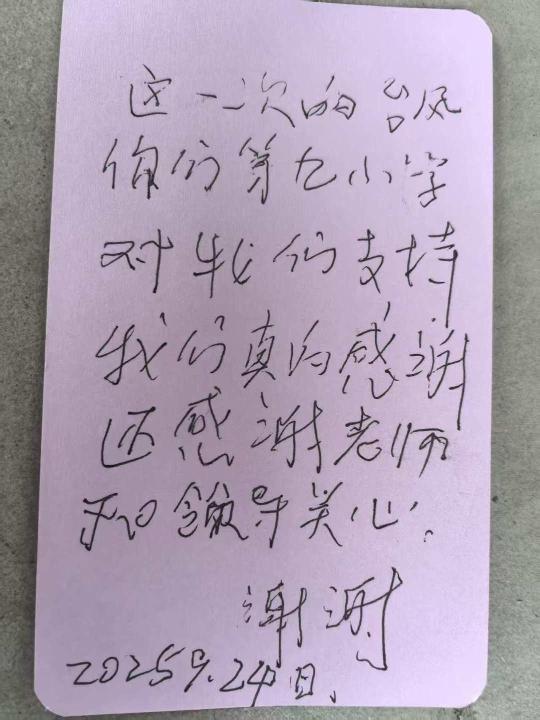 这一次的台风
你们第九小学
对我们支持
我们真的感谢
还感谢老师
和领导关心!
谢谢
2025.9.24日.